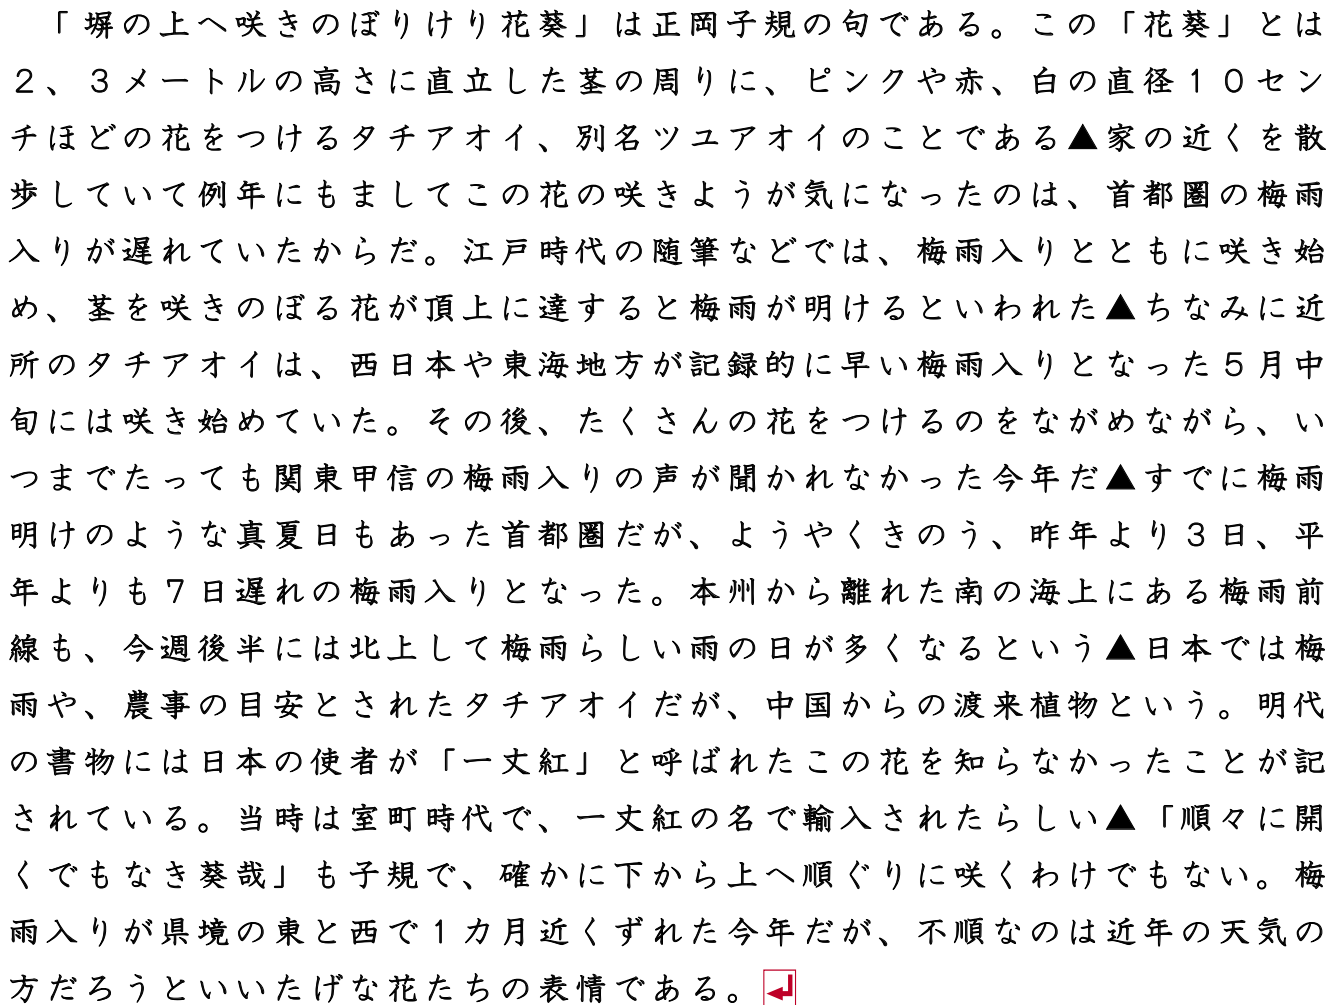 「塀の上へ咲きのぼりけり花葵」は正岡子規の句である。この「花葵」とは
２、３メートルの高さに直立した茎の周りに、ピンクや赤、白の直径１０セン
チほどの花をつけるタチアオイ、別名ツユアオイのことである▲家の近くを散
歩していて例年にもましてこの花の咲きようが気になったのは、首都圏の梅雨
入りが遅れていたからだ。江戸時代の随筆などでは、梅雨入りとともに咲き始
め、茎を咲きのぼる花が頂上に達すると梅雨が明けるといわれた▲ちなみに近
所のタチアオイは、西日本や東海地方が記録的に早い梅雨入りとなった５月中
旬には咲き始めていた。その後、たくさんの花をつけるのをながめながら、い
つまでたっても関東甲信の梅雨入りの声が聞かれなかった今年だ▲すでに梅雨
明けのような真夏日もあった首都圏だが、ようやくきのう、昨年より３日、平
年よりも７日遅れの梅雨入りとなった。本州から離れた南の海上にある梅雨前
線も、今週後半には北上して梅雨らしい雨の日が多くなるという▲日本では梅
雨や、農事の目安とされたタチアオイだが、中国からの渡来植物という。明代
の書物には日本の使者が「一丈紅」と呼ばれたこの花を知らなかったことが記
されている。当時は室町時代で、一丈紅の名で輸入されたらしい▲「順々に開
くでもなき葵哉」も子規で、確かに下から上へ順ぐりに咲くわけでもない。梅
雨入りが県境の東と西で１カ月近くずれた今年だが、不順なのは近年の天気の
方だろうといいたげな花たちの表情である。